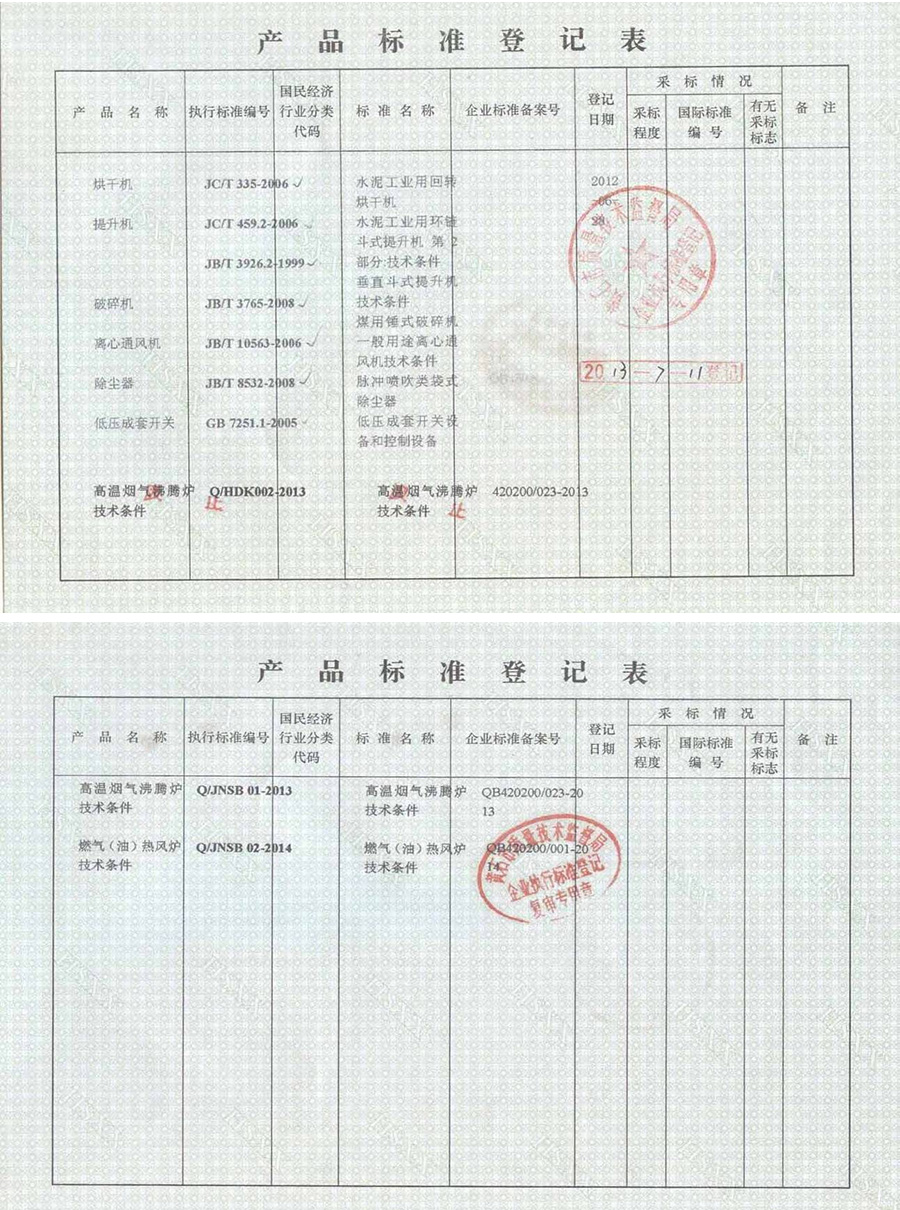 产 品 标 准 登 记 表
产 品 名 称 执行标准编号 国民经济行业分类代码 标 准 名 称 企业标准备案号 登记日期 采 标 情 况 备 注
采标程度 国际标准编 号 有无采标标志
烘干机 JC/T 335-2006 ✓ 水泥工业用回转 2012
烘干机 -06-
提升机 JC/T 459.2-2006 ✓ 水泥工业用环链 28
斗式提升机 第 2
JB/T 3926.2-1999 ✓ 部分:技术条件
垂直斗式提升机
破碎机 JB/T 3765-2008 ✓ 技术条件
煤用锤式破碎机
离心通风机 JB/T 10563-2006 ✓ 一般用途离心通
风机技术条件 2013-7-11登记
除尘器 JB/T 8532-2008 ✓ 脉冲喷吹类袋式
除尘器
低压成套开关 GB 7251.1-2005 ✓ 低压成套开关设
备和控制设备
高温烟气沸腾炉 Q/HDK002-2013 高温烟气沸腾炉 420200/023-2013
技术条件 止 技术条件 止
产 品 标 准 登 记 表
产 品 名 称 执行标准编号 国民经济行业分类代码 标 准 名 称 企业标准备案号 登记日期 采 标 情 况 备 注
采标程度 国际标准编 号 有无采标标志
高温烟气沸腾炉 Q/JNSB 01-2013 高温烟气沸腾炉 QB420200/023-20
技术条件 技术条件 13
燃气（油）热风炉 Q/JNSB 02-2014 燃气（油）热风炉 QB420200/001-20
技术条件 技术条件 14
黄石市质量技术监督局
企业执行标准登记
复审专用章